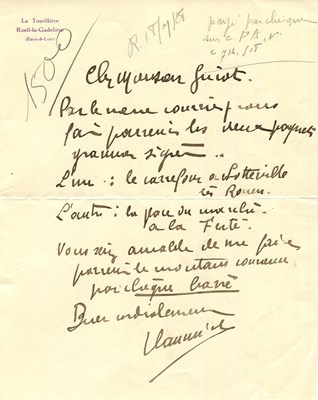 La Tourillière
Rueil-la-Gadelière
(Eure-et-Loir)
1500
R. 18/9/58
payé par chèque
sur c
Cher Monsieur
Par le même courrier je vous
fais parvenir les deux paysages
signés ..
L'un : le carrefour à Sotteville
lès Rouen.
L'autre : la place du marché
à la Ferté.
Vous seriez aimable de me faire
parvenir le montant convenu
par chèque barré
Bien cordialement
Vlaminck